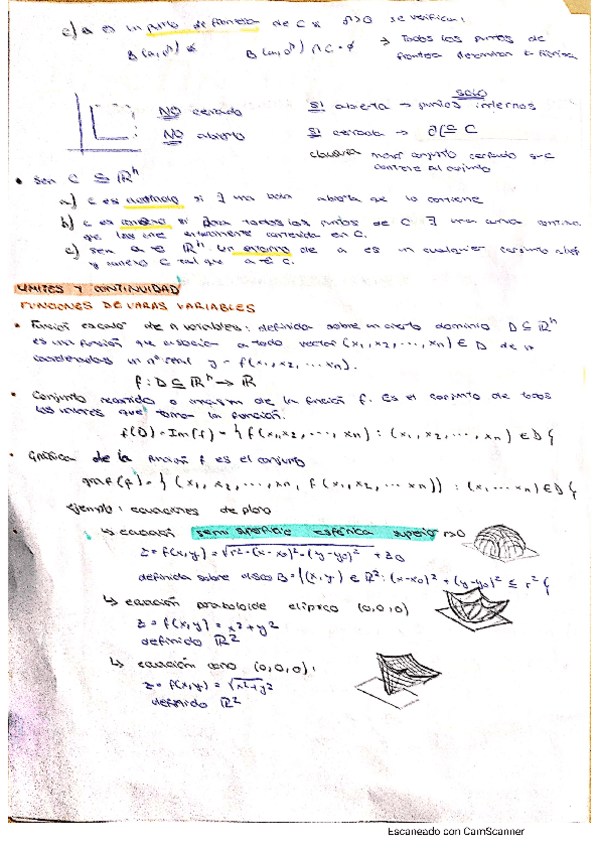 c) a es un punto de frontera de C si r>0 se verifica:
B(a,r) B(a,r) ∩ C = ø → Todos los puntos de
frontera
SOLO
NO cerrado SI abierta → puntos internos
NO abierto SI cerrada → ∂C ⊆ C
clausura menor conjunto cerrado que
contiene al conjunto
• Sea C ⊆ ℝⁿ
a) C es si ∃ una bola abierta que lo contiene
b) C es conexo si para todos los puntos de C ∃ una curva continua
que los une enteramente contenida en C.
c) Sea a ∈ ℝⁿ. Un entorno de a es un cualquier conjunto
y conexo C tal que a ∈ C.
LIMITES Y CONTINUIDAD
FUNCIONES DE VARIAS VARIABLES
• Función escalar de n variables: definida sobre un cierto dominio D ⊆ ℝⁿ
es una función que asocia a todo vector (x₁, x₂, ..., xₙ) ∈ D de n
coordenadas un nº real y = f(x₁, x₂, ... xₙ).
f: D ⊆ ℝⁿ → ℝ
• Conjunto recorrido o imagen de la función f. Es el conjunto de todos
los valores que toma la función.
f(D) = Im(f) = { f(x₁, x₂, ..., xₙ) : (x₁, x₂, ..., xₙ) ∈ D }
• Gráfica de la función f es el conjunto
graf(f) = { (x₁, x₂, ..., xₙ, f(x₁, x₂, ... xₙ)) : (x, ... xₙ) ∈ D }
Ejemplo: ecuaciones de plano
↳ ecuación semi superficie esférica superior r>0
z = f(x,y) = √r² - (x-x₀)² - (y-y₀)² + z₀
definida sobre disco B = {(x,y) ∈ ℝ²: (x-x₀)² + (y-y₀)² ≤ r²}
↳ ecuación paraboloide elíptico (0,0,0)
z = f(x,y) = x² + y²
definido ℝ²
↳ ecuación cono (0,0,0):
z = f(x,y) = √x²+y²
definido ℝ²
Escaneado con CamScanner